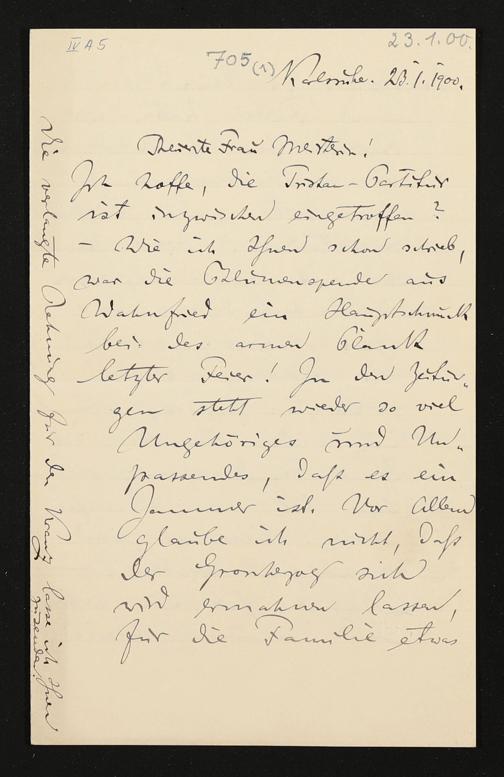 IV A 5
23.1.00.
705 (1)
Karlsruhe. 23.1.1900.
Theuerste Frau Meisterin!
Ich hoffe, die Tristan-Partitur
ist inzwischen eingetroffen?
– Wie ich Ihnen schon schrieb,
war die Blumenspende aus
Wahnfried ein Hauptschmuck
bei des armen Plank
letzter Feier! In den Zeitun-
gen steht wieder so viel
Ungehöriges und Un-
passendes, daß es ein
Jammer ist. Vor Allem
glaube ich nicht, daß
der Grossherzog sich
wird ermahnen lassen,
für die Familie etwas
Die verlangte Rechnung für den Kranz lasse ich Ihnen
zusenden.